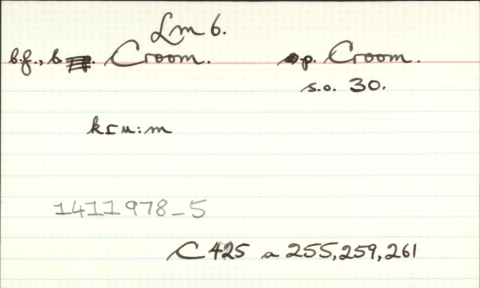 Lm 6.
b.f., b. Croom. p. Croom.
s.o. 30.
kru:m
1411978_5
C 425 a 255,259,261